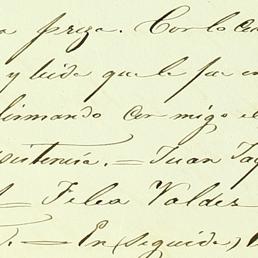 a priza. Con lo
y leida que le fue
firmando con migo el
sistencia. = Juan
= Felix Valdez
= En seguida)